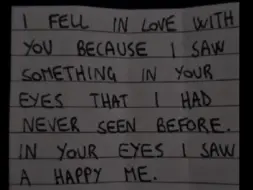 I FELL IN LOVE WITH
YOU BECAUSE I SAW
SOMETHING IN YOUR
EYES THAT I HAD
NEVER SEEN BEFORE.
IN YOUR EYES I SAW
A HAPPY ME.